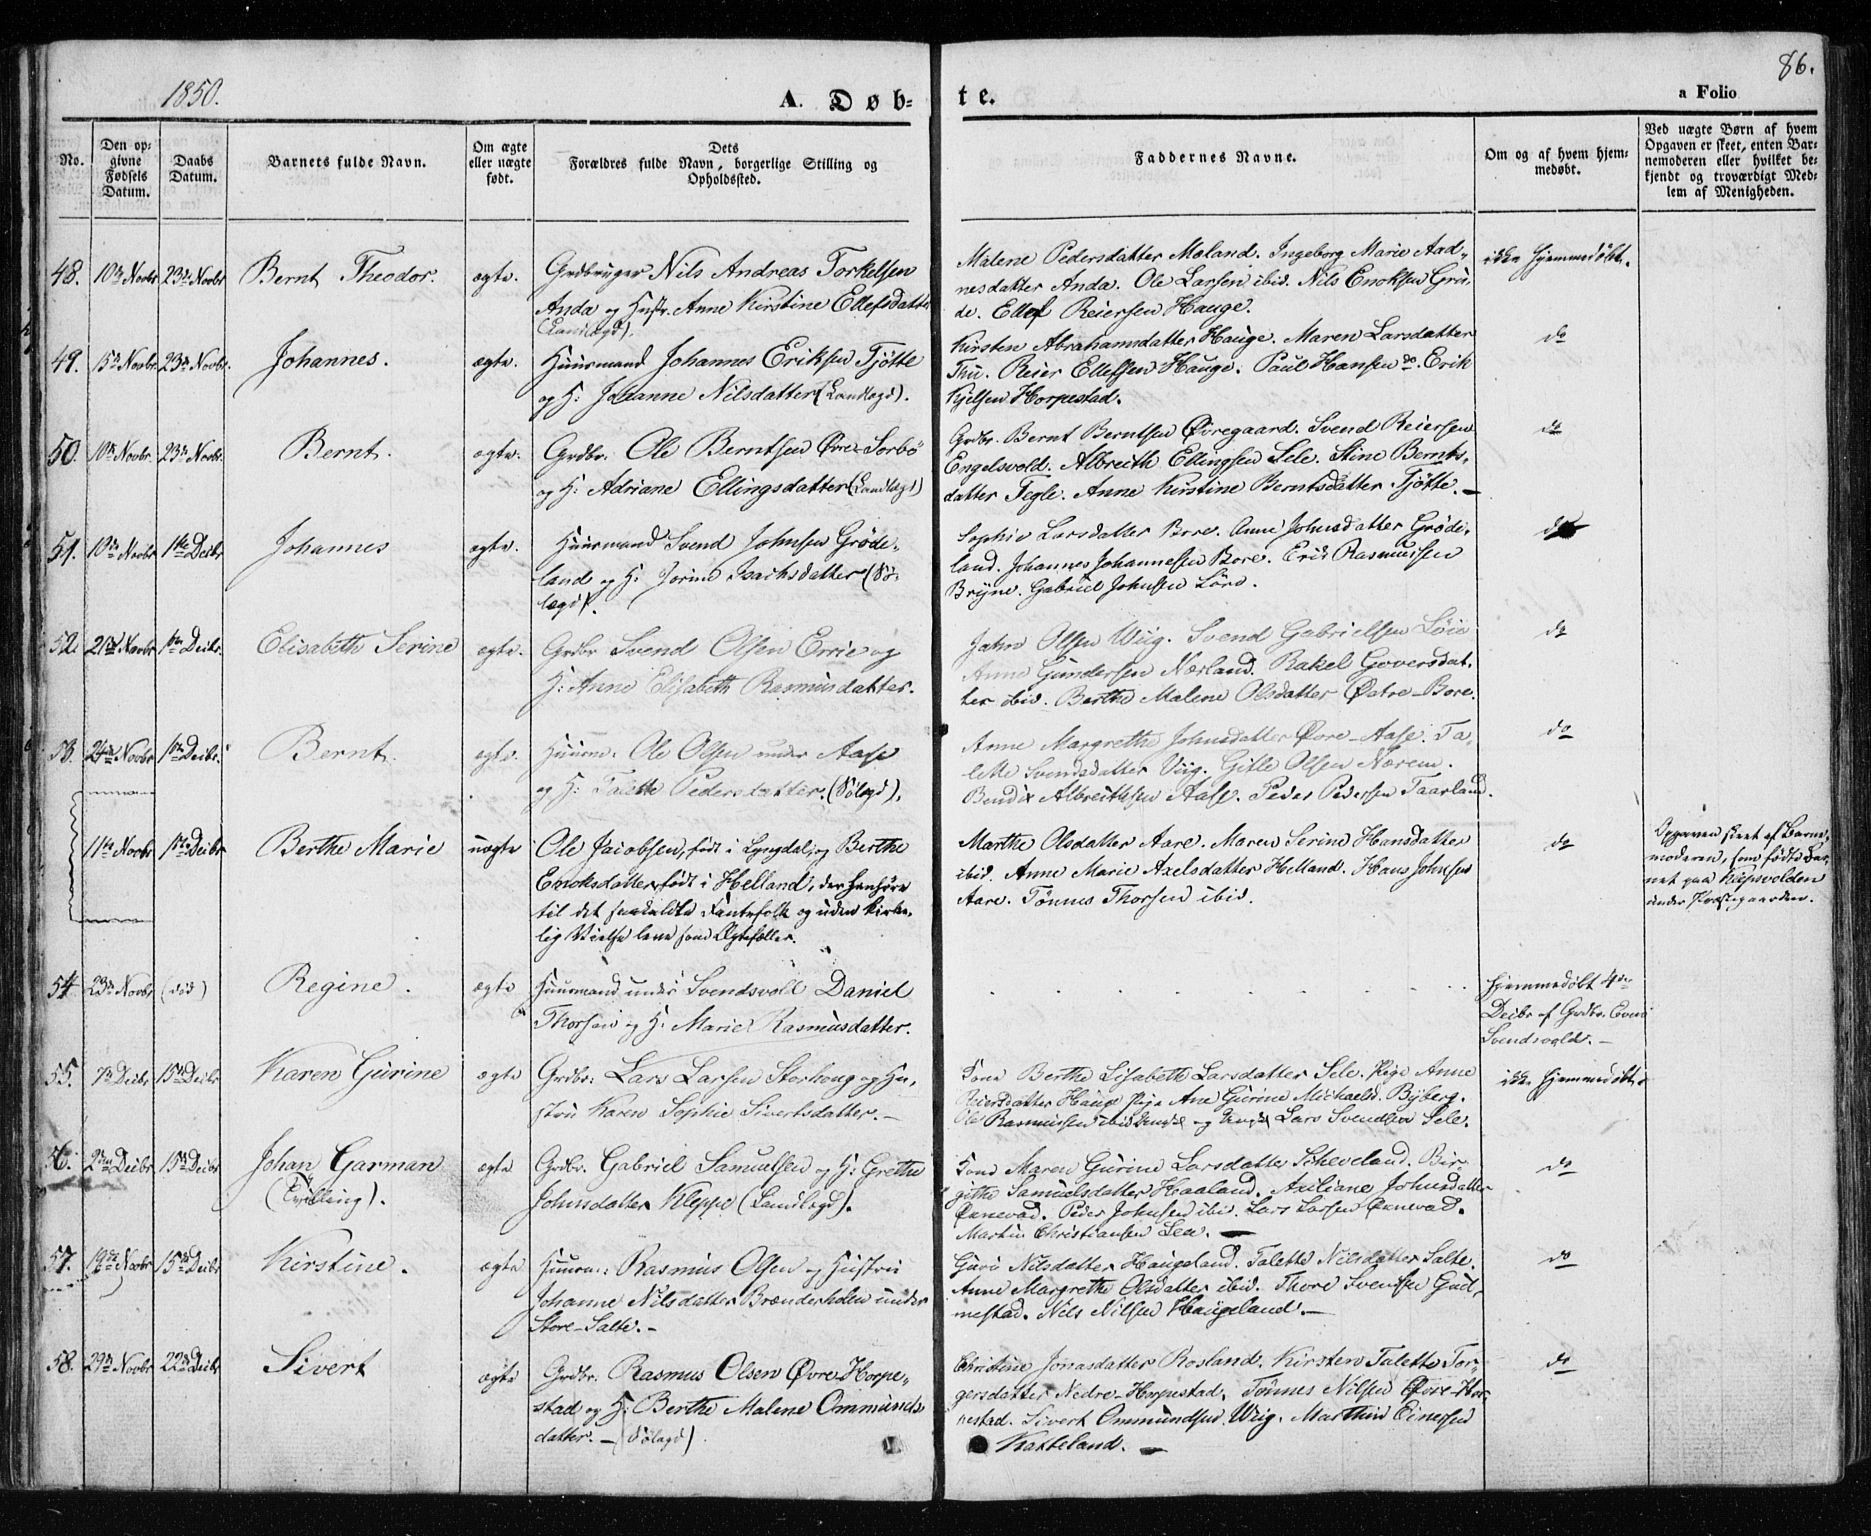 1850.
A. Døb=
te.
a Folio
86.
No.
Den op=
givne
Fødsels
Datum.
Daabs
Datum.
Barnets fulde Navn.
Om ægte
eller uægte
født.
Dets
Forældres fulde Navn, borgerlige Stilling og
Opholdssted.
Faddernes Navne.
Om og af hvem hjem=
medøbt.
Ved uægte Børn af hvem
Opgaven er skeet, enten Bar=
nemoderen eller hvilket be=
kjendt og troværdigt Med=
lem af Menigheden.
48. 10de Novbr 23de Novbr Bernt Theodor. ægte.
Grdbruger Nils Andreas Torkelsen
Anda og Hustr. Anne Kirstine Ellefsdatter
(Landlægd).
Malene Pedersdatter Meland. Ingeborg Marie Aad=
nesdatter Anda. Ole Larsen ibid. Nils Enoksen Gru=
de. Ellef Reiersen Hauge.
ikke hjemmedøbt.
49. 15de Novbr 23de Novbr. Johannes. ægte.
Huusmand Johannes Eriksen Tjøtte
og H: Johanne Nilsdatter (Landlægd).
Kirsten Abrahamsdatter Hauge. Maren Larsdatter
Thu. Reier Ellefsen Hauge. Paul Hansen do. Erik
Kjelsen Horpestad.
do
50. 10de Novbr. 23de Novbr. Bernt. ægte.
Grdbr. Ole Berntsen Øvre-Sorbø
og H: Adriane Ellingsdatter (Landlægd)
Grdbr. Bernt Berntsen Øvregaard. Svend Reiersen
Engelsvold. Albreith Ellingsen Sele. Stine Bernts=
datter Tegle. Anne Kirstine Berntsdatter Tjøtte.—
do
51. 10de Novbr 1ste Decbr Johannes ægte.
Huusmand Svend Johnsen Grøde=
land og H: Jorine Isachsdatter (Sø=
lægd).
Sophie Larsdatter Bore. Anne Johnsdatter Grøde=
land. Johannes Johannesen Bore. Erik Rasmussen
Bryne. Gabriel Johnsen
do
52. 21de Novbr 1ste Decbr. Elisabeth Serine ægte.
Grdbr Svend Olsen Ervie og
H: Anne Elisabeth Rasmusdatter.
John Olsen Wiig. Svend Gabrielsen
Anne Gundersen Nærland. Rakel Goversdat=
ter ibid. Berthe Malene Olsdatter Østre-Bore.
do
53. 24de Novbr 1ste Decbr. Bernt. ægte.
Huusm. Ole Olsen under Aase
og H: Talette Pedersdatter. (Sølægd).
Anne Margrethe Johnsdatter Øvre-Aase. Ta=
lette Svendsdatter Viig. Gitle Olsen Nærem.
Bendix Albreithsen Aase. Peder Pedersen Taarland.
do
11te Novbr 1ste Decbr Berthe Marie uægte
Ole Jacobsen, født i Lyngdal, og Berthe
Enoksdatter født i Helland, der henhøre
til det saakaldte Fantefolk og uden kirke=
lig Vielse leve som Ægtefæller.
Marthe Olsdatter Aare. Maren Serine Hansdatter
ibid. Anne Marie Axelsdatter Helland. Hans Johnsen
Aare. Tønnes Thorsen ibid.
do
Opgaven skeet af Barne=
moderen, som fødte Bar=
net paa Kleppvolden
under Præstegaarden.
54. 23de Novbr (død) Regine. ægte
Huusmand under Svendsvoll Daniel
Thorsen og H: Marie Rasmusdatter.
Hjemmedøbt 4de
Decbr af Grdbr. Even
Svendsvold. —
55. 7de Decbr 15de Decbr Karen Gurine ægte
Grdbr: Lars Larsen Storhoug og Hu=
stru Karen Sophie Sivertsdatter.—
Kone Berthe Lisabeth Larsdatter Sele. Pige Anne
Reiersdatter Hauge Pige Ane Gurine Michaelsd. Byberg.
Ole Rasmussen ibid Ungkl og Ungkl Lars Svendsen Sele.
ikke hjemmedøbt
56. 2den Decbr 15de Decbr Johan Garman
(Tvilling). ægte
Grdbr. Gabriel Samuelsen og H: Grethe
Johnsdatter Kleppe (Landlægd).
Kone Maren Gurine Larsdatter Scheveland. Bir=
gitte Samuelsdatter Haaland. Axiliane Johnsdatter
Øxnevad. Peder Johnsen ibid. Lars Larsen Øxnevad.
Martin Christiansen Lea. —
do
57. 19de Novbr 15de Decbr Kirstine. ægte
Huusm: Rasmus Olsen og Hustru
Johanne Nilsdatter Brænderholen under
Store-Salte.—
Guri Nilsdatter Haugeland. Talette Nilsdatter Salte.
Anne Margrethe Olsdatter ibid. Thore Svendsen Gud=
mestad. Nils Nilsen Haugeland.—
do
58. 29de Novbr 22de Decbr Sivert ægte
Grdbr. Rasmus Olsen Øvre-Horpe=
stad og H: Berthe Malene Ommunds=
datter.—(Sølægd).
Christine Jonasdatter Rosland. Kirsten Talette Tor=
gersdatter Nedre-Horpestad. Tønnes Nilsen Øvre-Hor=
pestad. Sivert Ommundsen Wiig. Marthin Einersen
Katteland. —
do